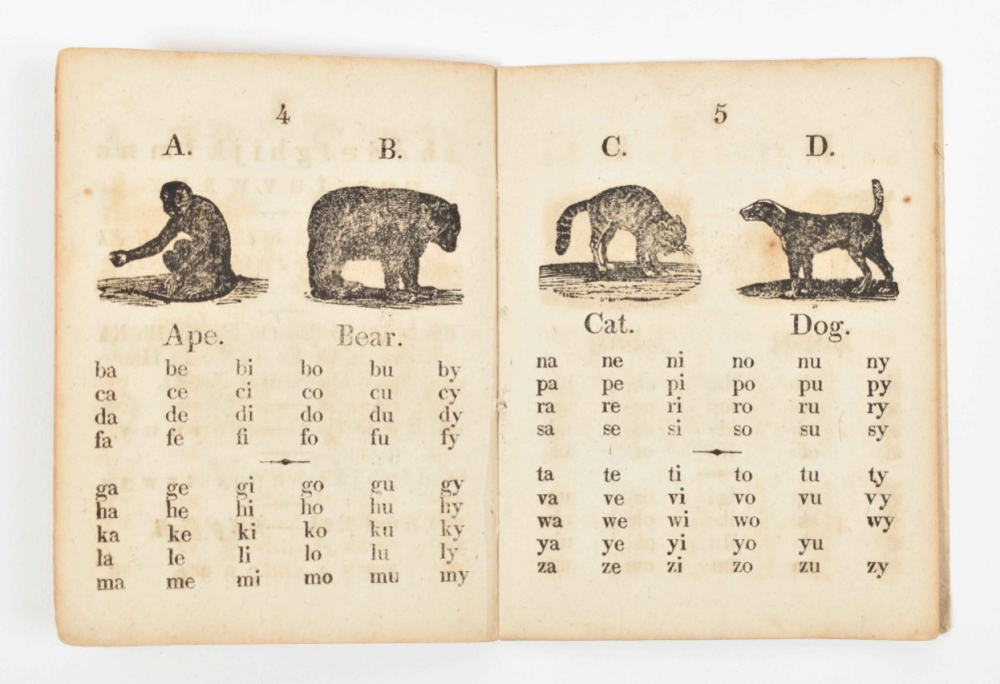 4
A. B.
Ape. Bear.
ba be bi bo bu by
ca ce ci co cu cy
da de di do du dy
fa fe fi fo fu fy
ga ge gi go gu gy
ha he hi ho hu hy
ka ke ki ko ku ky
la le li lo lu ly
ma me mi mo mu my
5
C. D.
Cat. Dog.
na ne ni no nu ny
pa pe pi po pu py
ra re ri ro ru ry
sa se si so su sy
ta te ti to tu ty
va ve vi vo vu vy
wa we wi wo wy
ya ye yi yo yu
za ze zi zo zu zy